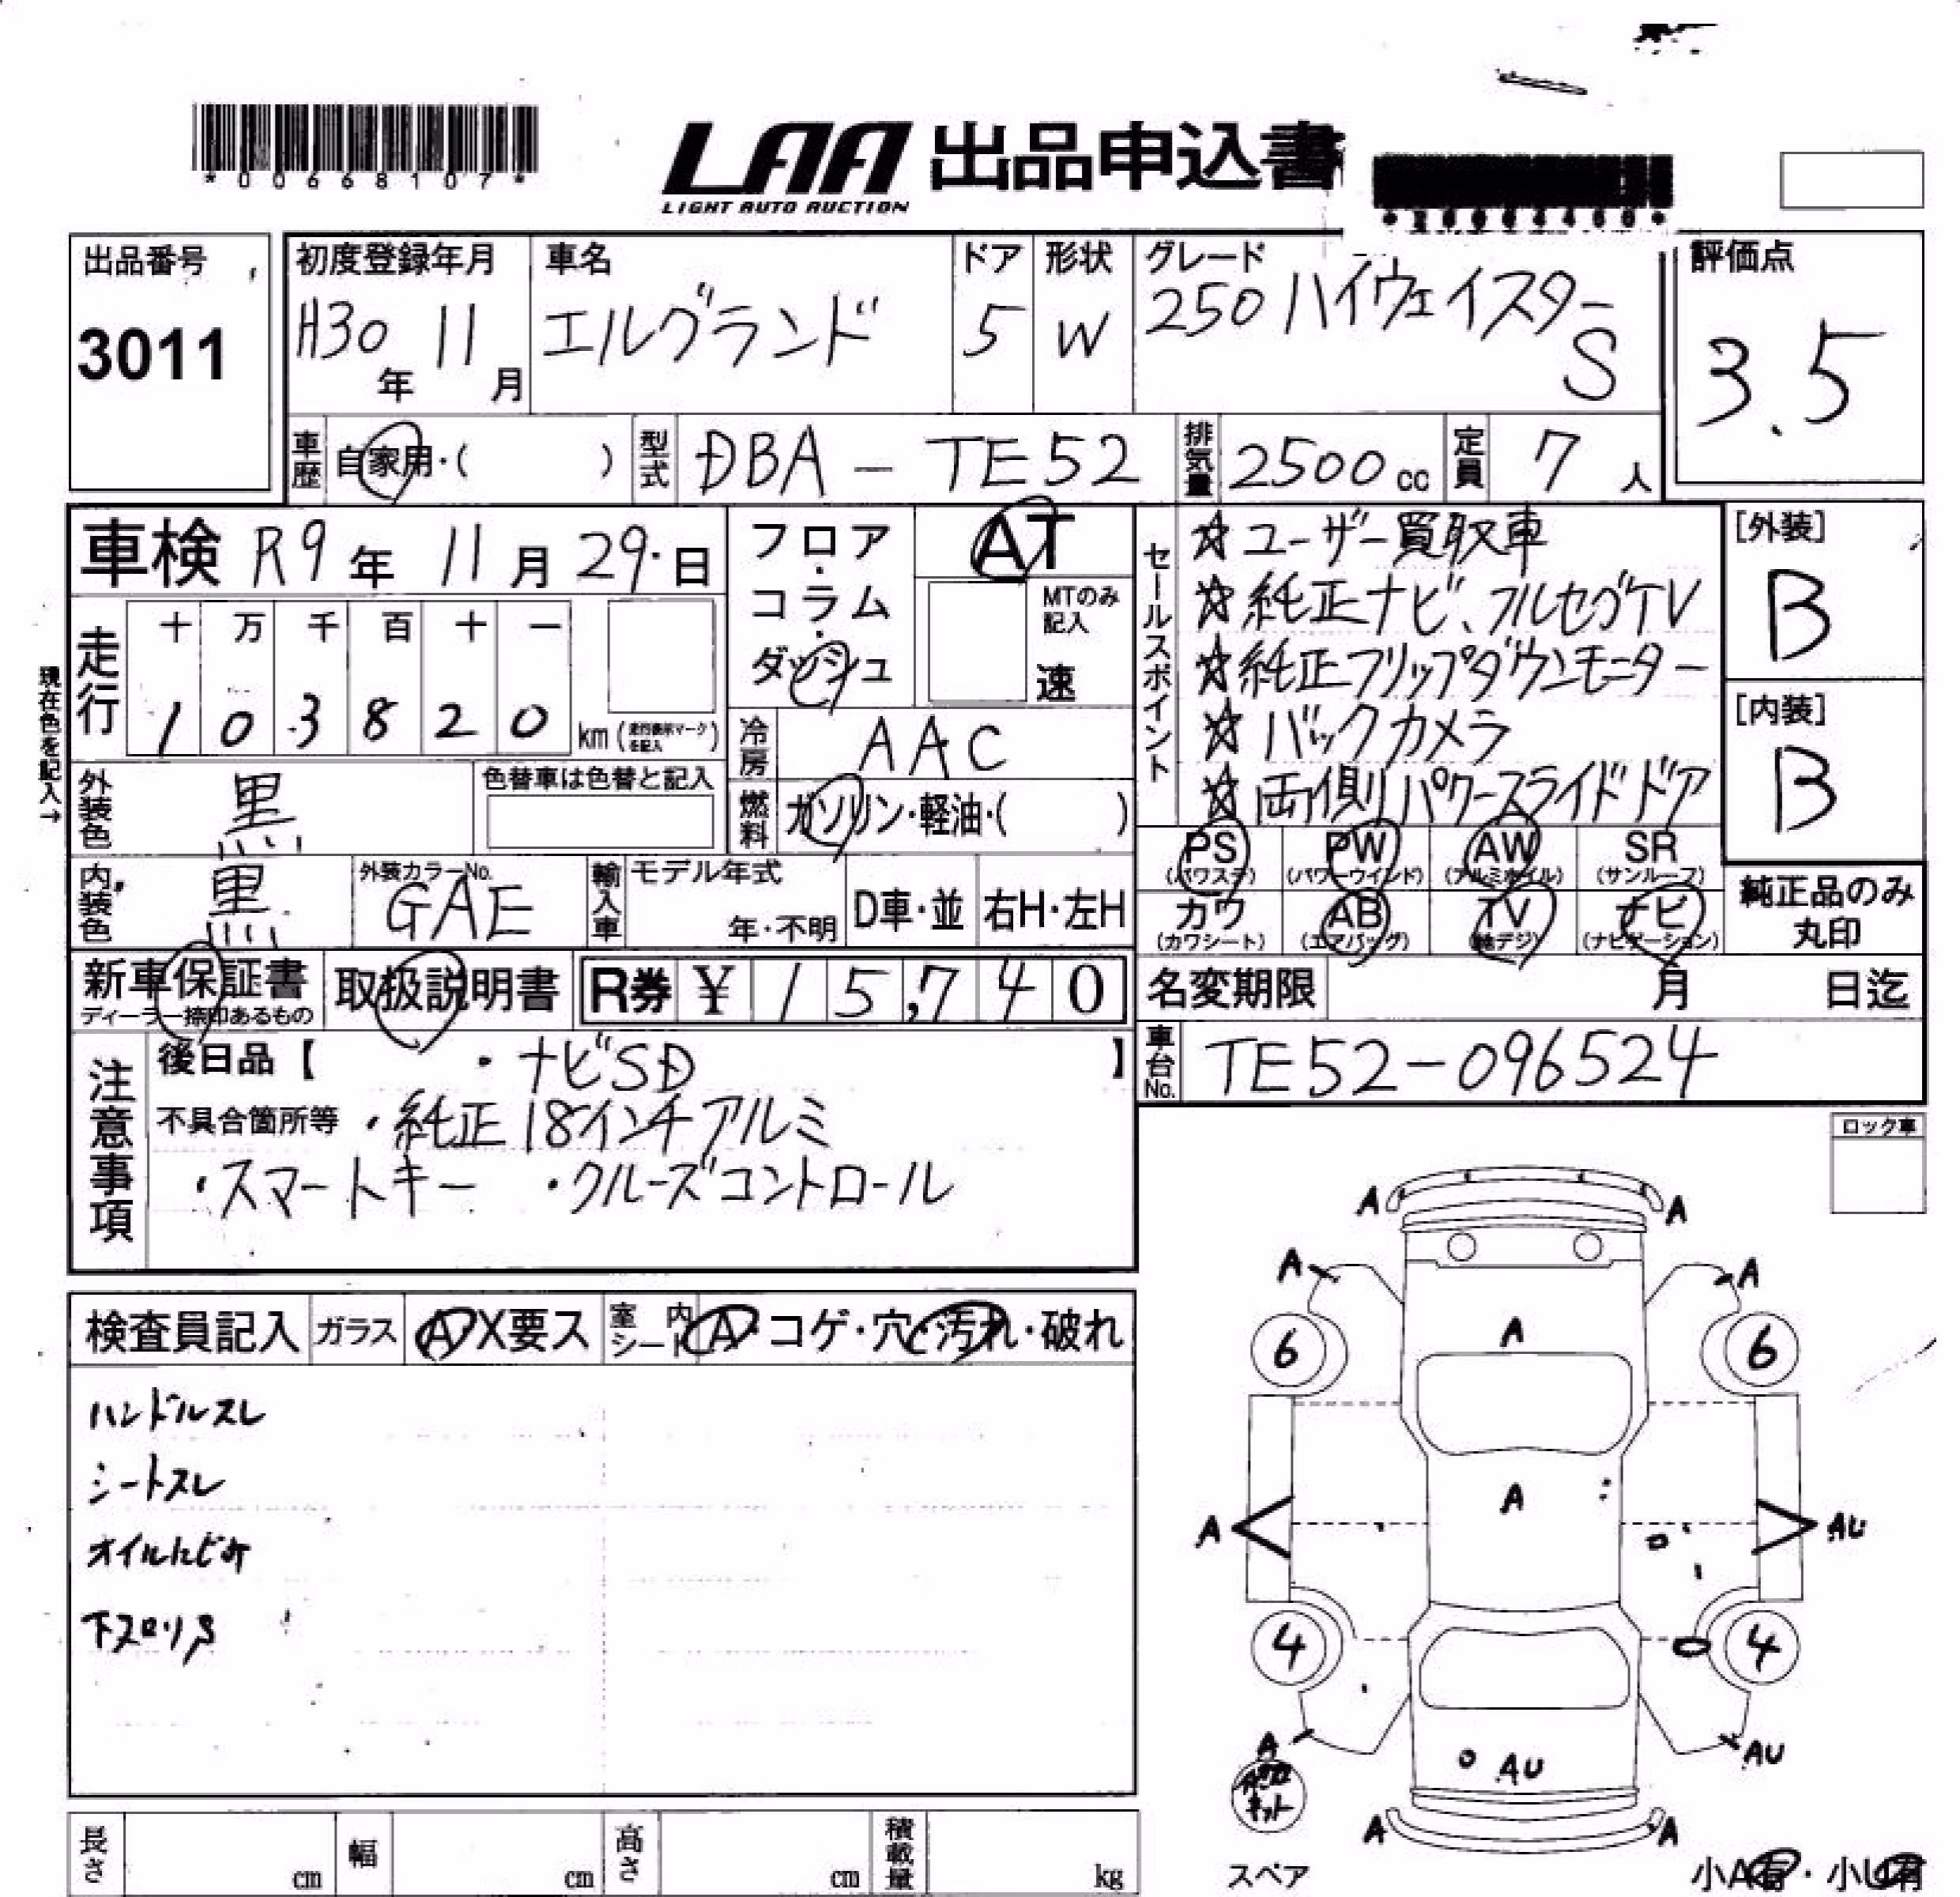 *00668107*
LAA 出品申込書
LIGHT AUTO AUCTION
出品番号
3011
初度登録年月
H30年 11月
車名
エルグランド
ドア
5
形状
W
グレード
250 ハイウェイスター
S
評価点
3.5
車歴 自家用・( )
型式 DBA - TE52
排気量 2500cc
定員 7人
車検 R9年 11月 29日
走行
十 万 千 百 十 一
1 0 3 8 2 0 km
現在色を記入→
フロア・コラム・ダッシュ
AT
MTのみ記入
速
冷房 AAC
燃料 ガソリン・軽油・( )
外装色 黒
色替車は色替と記入
内装色 黒
外装カラーNo.
GAE
輸入車
モデル年式
年・不明
D車・並
右H・左H
セールスポイント
☆ユーザー買取車
☆純正ナビ、フルセグTV
☆純正フリップダウンモニター
☆バックカメラ
☆両側パワースライドドア
[外装]
B
[内装]
B
PS (パワステ)
PW (パワーウインド)
AW (アルミホイル)
SR (サンルーフ)
カワ (カワシート)
AB (エアバッグ)
TV (地デジ)
ナビ (ナビゲーション)
純正品のみ
丸印
新車保証書
ディーラー捺印あるもの
取扱説明書
R券 ¥ 15,740
名変期限 月 日迄
車台No. TE52-096524
注意事項
後日品【 ・ナビSD 】
不具合箇所等 ・純正18インチアルミ
・スマートキー ・クルーズコントロール
ロック車
検査員記入
ガラス A・X要ス
室内シート A・コゲ・穴・汚れ・破れ
ハンドルスレ
シートスレ
オイルにじみ
下スロリS
A A
A A
6 A 6
A
A AU
4 4
A AU
AU
A A
スペア
小A有・小U有
長さ cm
幅 cm
高さ cm
積載量 kg